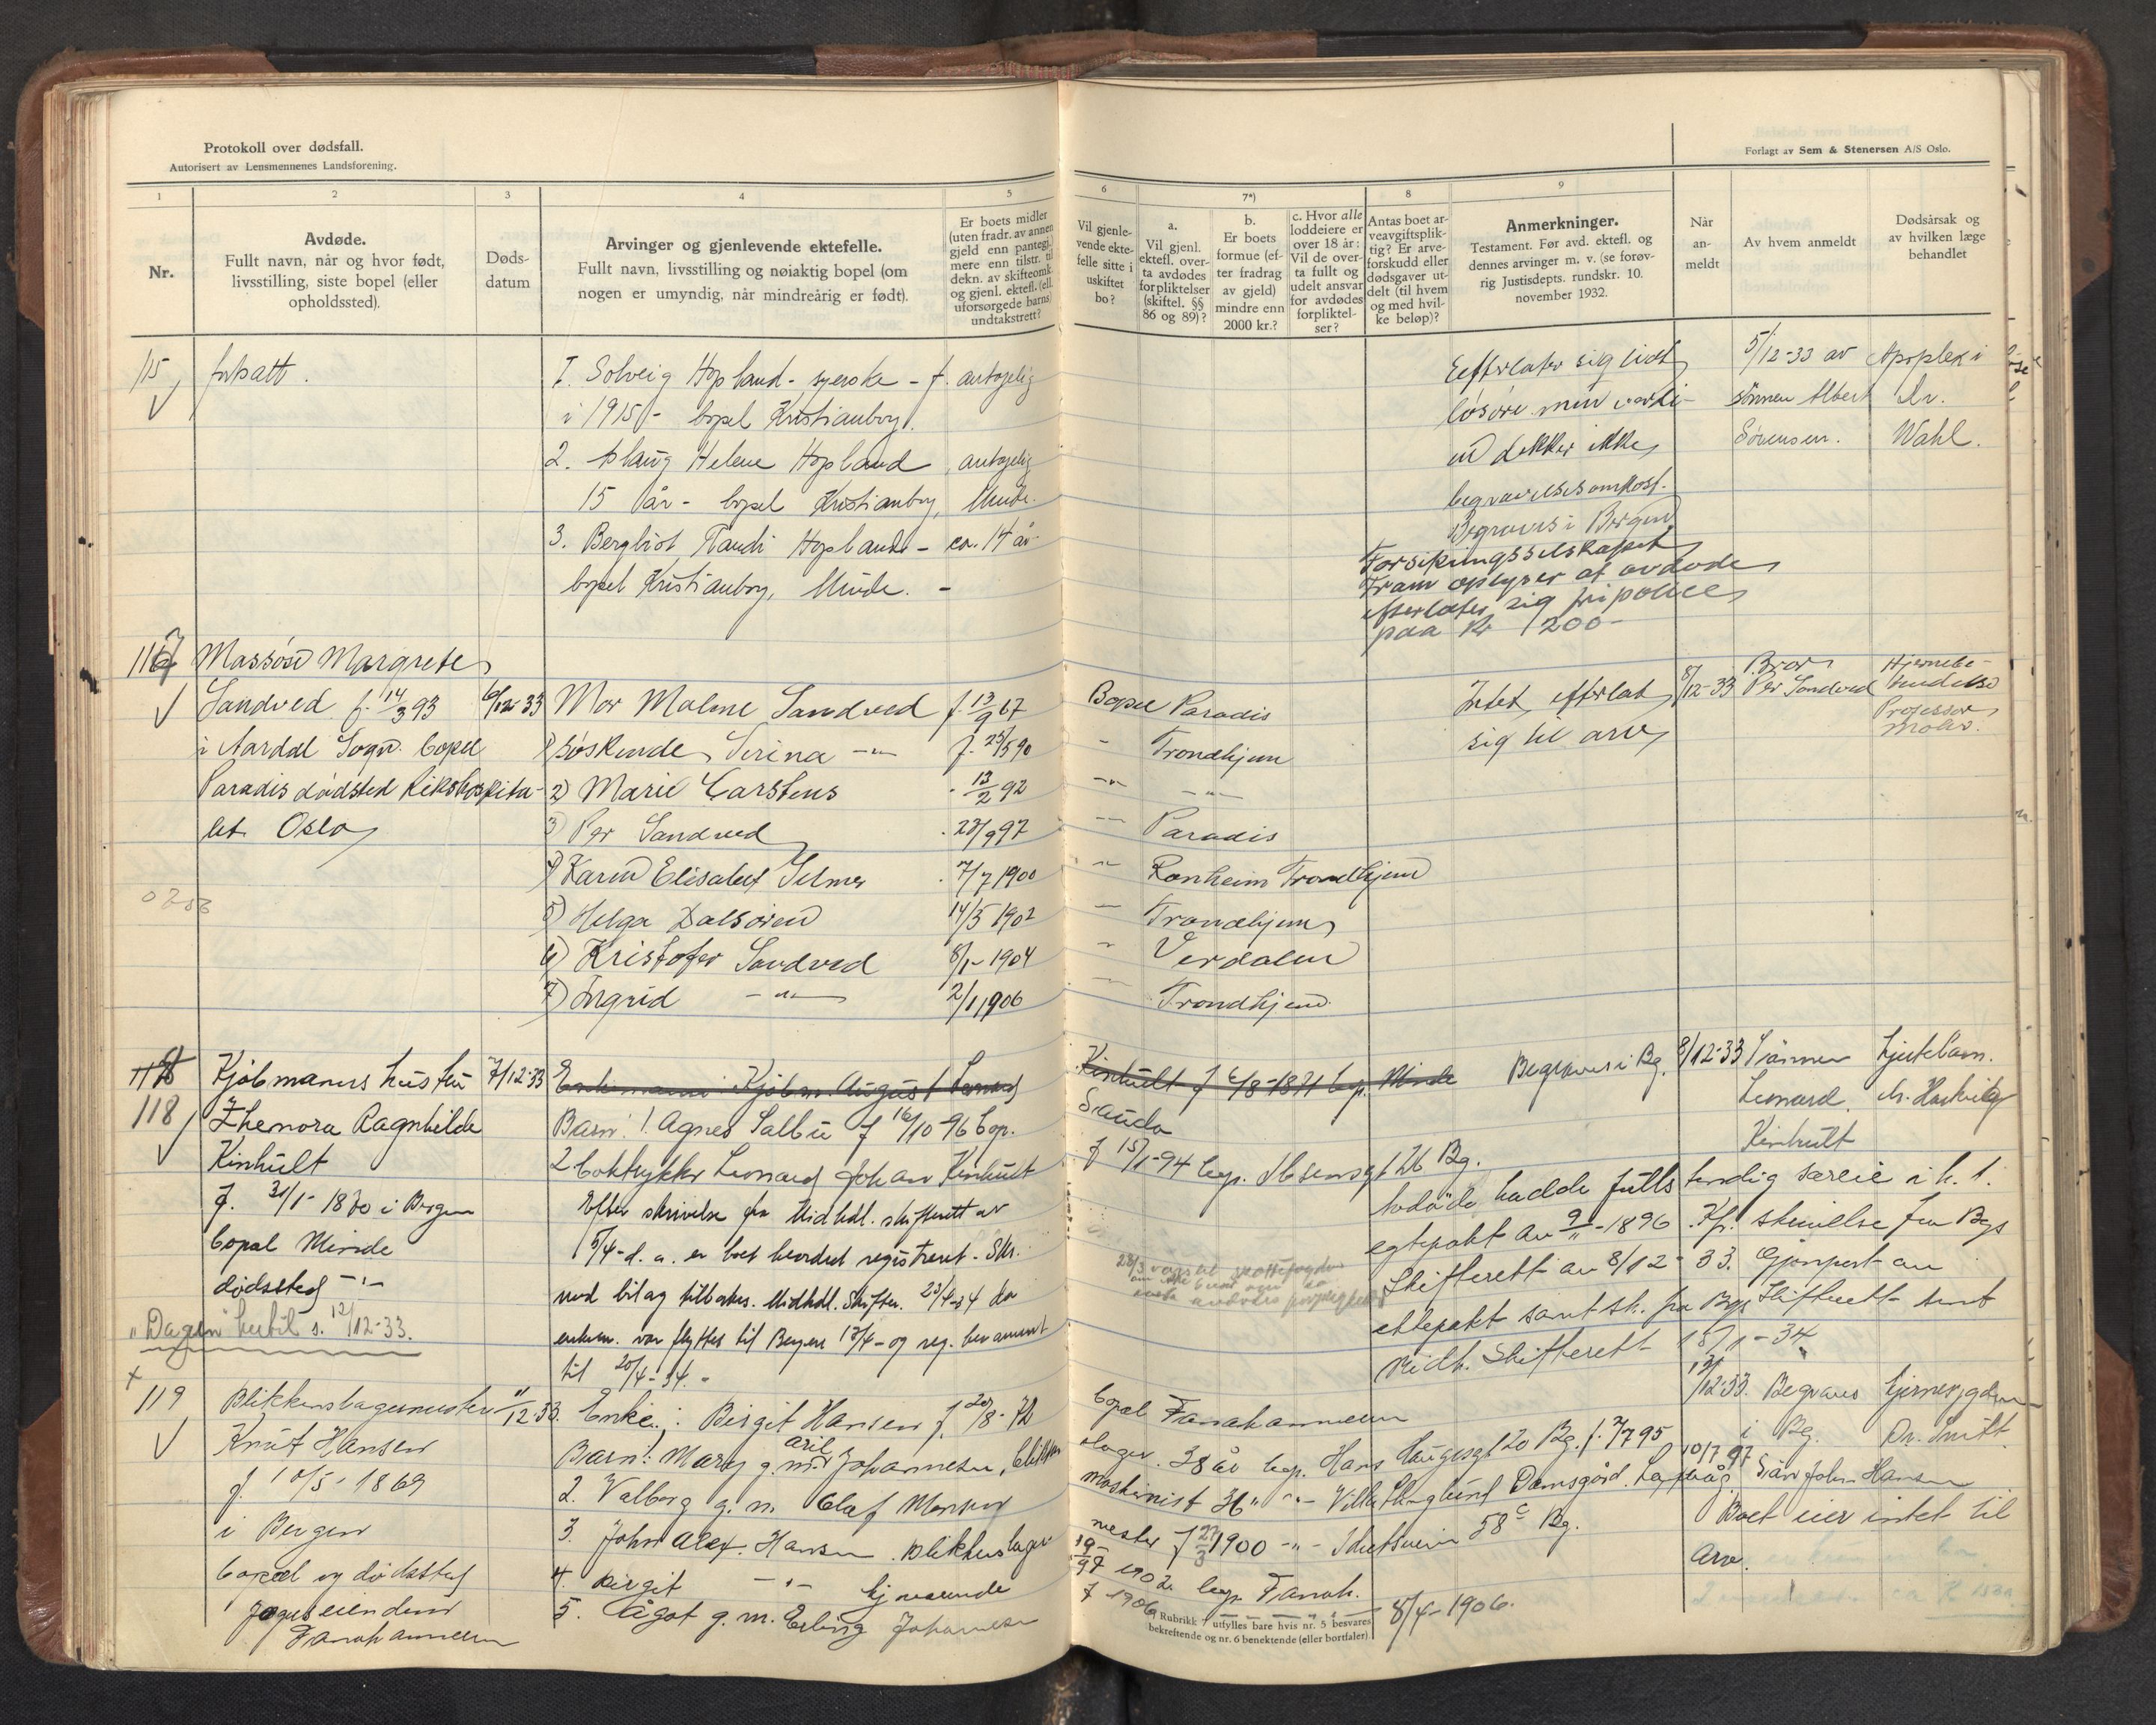 Protokoll over dødsfall.
Autorisert av Lensmennenes Landsforening.
Forlagt av Sem & Stenersen A/S Oslo.
1
2
3
4
5
6
7*)
8
9
Nr.
Avdøde.
Fullt navn, når og hvor født,
livsstilling, siste bopel (eller
opholdssted).
Døds-
datum
Arvinger og gjenlevende ektefelle.
Fullt navn, livsstilling og nøiaktig bopel (om
nogen er umyndig, når mindreårig er født).
Er boets midler
(uten fradr. av annen
gjeld enn pantegj.)
mere enn tilstr. til
dekn. av skifteomk.
og gjenl. ektefl. (ell.
uforsørgede barns)
undtakstrett?
Vil gjenle-
vende ekte-
felle sitte i
uskiftet
bo?
a.
Vil gjenl.
ektefl. over-
ta avdødes
forpliktelser
(skiftel. §§
86 og 89)?
b.
Er boets
formue (ef-
ter fradrag
av gjeld)
mindre enn
2000 kr.?
c. Hvor alle
loddeiere er
over 18 år:
Vil de over-
ta fullt og
udelt ansvar
for avdødes
forpliktel-
ser?
Antas boet ar-
veavgiftsplik-
tig? Er arve-
forskudd eller
dødsgaver ut-
delt (til hvem
og med hvil-
ke beløp)?
Anmerkninger.
Testament. Før avd. ektefl. og
dennes arvinger m. v. (se forøv-
rig Justisdepts. rundskr. 10.
november 1932.
Når
an-
meldt
Av hvem anmeldt
Dødsårsak og
av hvilken læge
behandlet
115 fortsatt.
1. Solveig Hopland - syerske - f. antagelig
i 1915 - bopel Kristianborg.
2. Aslaug Helene Hopland antagelig
15 år - bopel Kristianborg, Minde.
3. Bergliot Randi Hopland - ca. 14 år
bopel Kristianborg, Minde. -
Efterlater sig lidt
løsøre men verdi-
en dekker ikke
begravelsesomkost.
Begraves i Bergen
Forsikringsselskapet
Fram oplyser at avdøde
efterlater sig fripolice
paa Kr 1200-
5/12-33 av
sønnen Albert
Sørensen.
Apoplexi
Dr.
Wahl.
Massøse Margrete
Sandved f. 14/3 93
i Aardal Sogn. bopel
Paradis dødsted Rikshospita-
let. Oslo
6/12-33
Mor Malene Sandved f. 13/9 67
1) Søskende Serina -"- f. 25/5 90
2) Marie Carstens - 13/2 92
3) Per Sandved . 23/9 97
4) Karen Elisabet Selmer . 7/7 1900
5) Helga Dalsøren 14/5 1902
6) Kristofer Sandved 8/1 - 1904
7) Ingrid -"- 2/1 1906
Bopel Paradis
" Trondhjem
-"- -"-
-"- Paradis
" Ranheim Trondhjem
" Trondhjem
" Verdalen
" Trondhjem.
Intet efterlat
sig til arv
8/12-33
Bror
Per Sandved
Hjernebe-
tendelse
Professor
118
Kjøbmanns hustru
Ehenora Ragnhilde
Kinhult
f. 31/1 - 1870 i Bergen
bopel Minde
dødssted -"-
"Dagen" hertil s. 12/12-33.
7/12-33
Enkemann: Kjøbm. August Leonard
Kinhult f 6/8-1871 bop. Minde
Barn: 1. Agnes Salbu f 16/10 96 bop.
Sauda
2. boktrykker Leonard Johan Kinhult
f 15/1-94 bop. Ibsensgt 26 Bg.
Efter skrivelse fra Midhdl. skifterett av
5/4- d. a. er boet beordret registreret. Skr.
med bilag tilbakes. Midhdl. Skifter. 23/4-34 da
enkem. var flyttet til Bergen 13/4 - og reg. berammet
til 20/4-34.
Begraves i Bg.
8/12-33
Sønnen
Leonard
Kinhult
Hjertelam.
Avdøde hadde fullstendig særeie i h. t.
egtepakt av 9/11-1896. Kfr. skrivelse fra Bgs
Skifterett av 8/12-33. Gjenpart av
ektepakt samt sk. fra Bgs Skifterett sendt
Midh. Skifterett 15/1-34
119
Blikkenslagermester
Knut Hansen
f. 10/5-1869
i Bergen
bopel og dødssted
Fanahammeren
11/12-33.
Enke: Birgit Hansen f. 20/8-72
bopel Fanahammeren
Barn: 1. Mary g. m. Johannesen, blikken
slager. 38 år bop. Hans Haugesgt 20 Bg.
2. Valborg g. m. Olaf Monsen
maskinist 36 " -"-
3. John Alex. Hansen. blikkenslager
mester f 27/3 1900 -"-
4. Birgit -"- hjemmevende
1902 bop. Fanah.
5. Ågot g. m. Erling Johannesen
f 1906
8/4-1906.
12-33. Begraves
i Bg.
Søn John Hansen
Boet eier intet til
Arv.
*) Rubrikk 7 utfylles bare hvis nr. 5 besvares
bekreftende og nr. 6 benektende (eller bortfaler).